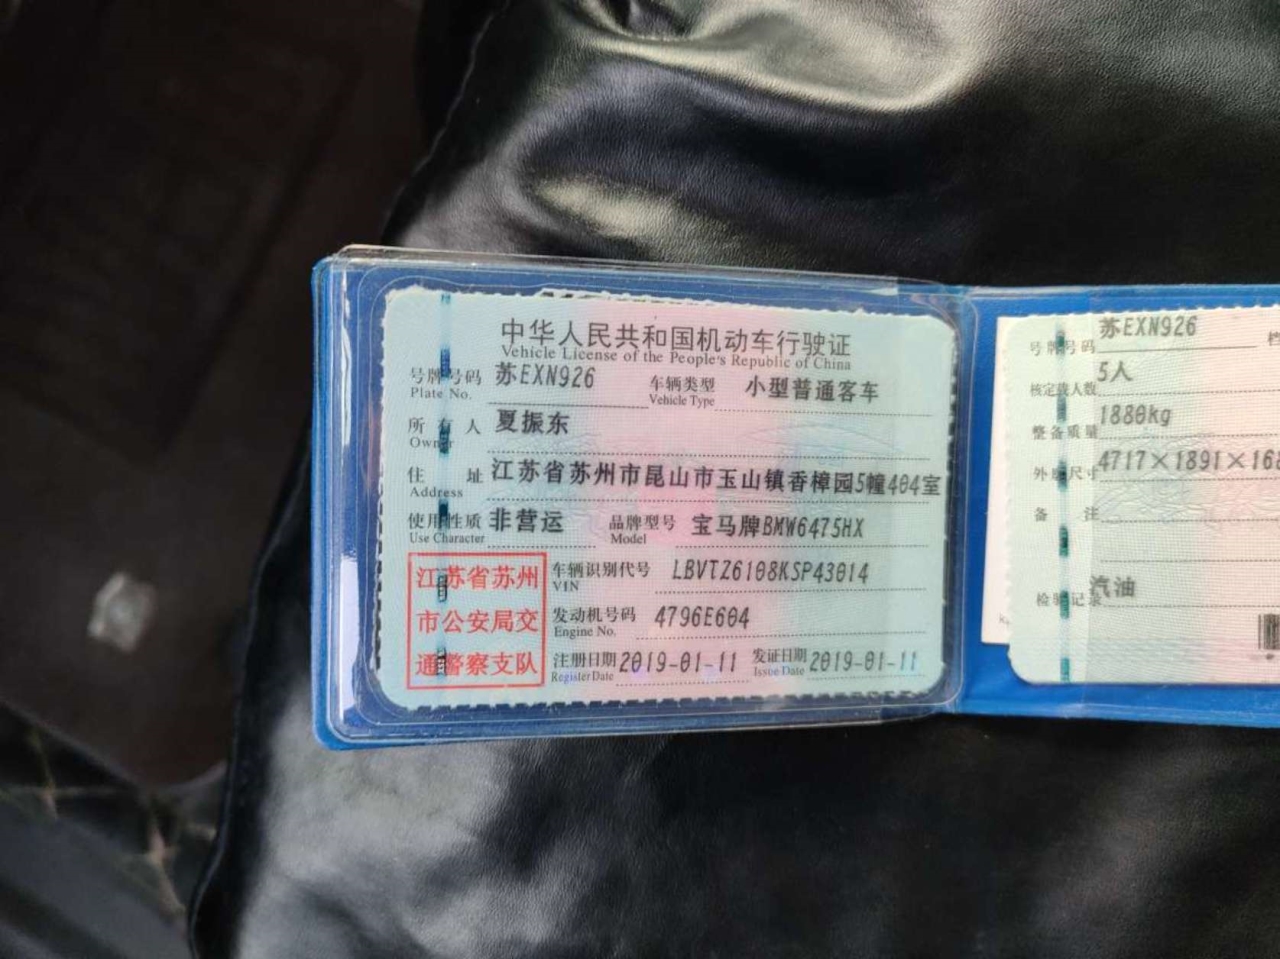 中华人民共和国机动车行驶证
Vehicle License of the People's Republic of China
号牌号码 苏EXN926 车辆类型 小型普通客车
Plate No. Vehicle Type
所有人 夏振东
Owner
住址 江苏省苏州市昆山市玉山镇香樟园5幢404室
Address
使用性质 非营运 品牌型号 宝马牌BMW6475HX
Use Character Model
江苏省苏州
市公安局交
通警察支队
车辆识别代号 LBVTZ6108KSP43014
VIN
发动机号码 4796E604
Engine No.
注册日期 2019-01-11 发证日期 2019-01-11
Register Date Issue Date
号牌号码 苏EXN926
核定载人数 5人
整备质量 1880kg
外廓尺寸 4717×1891×168
备注
检验记录 汽油